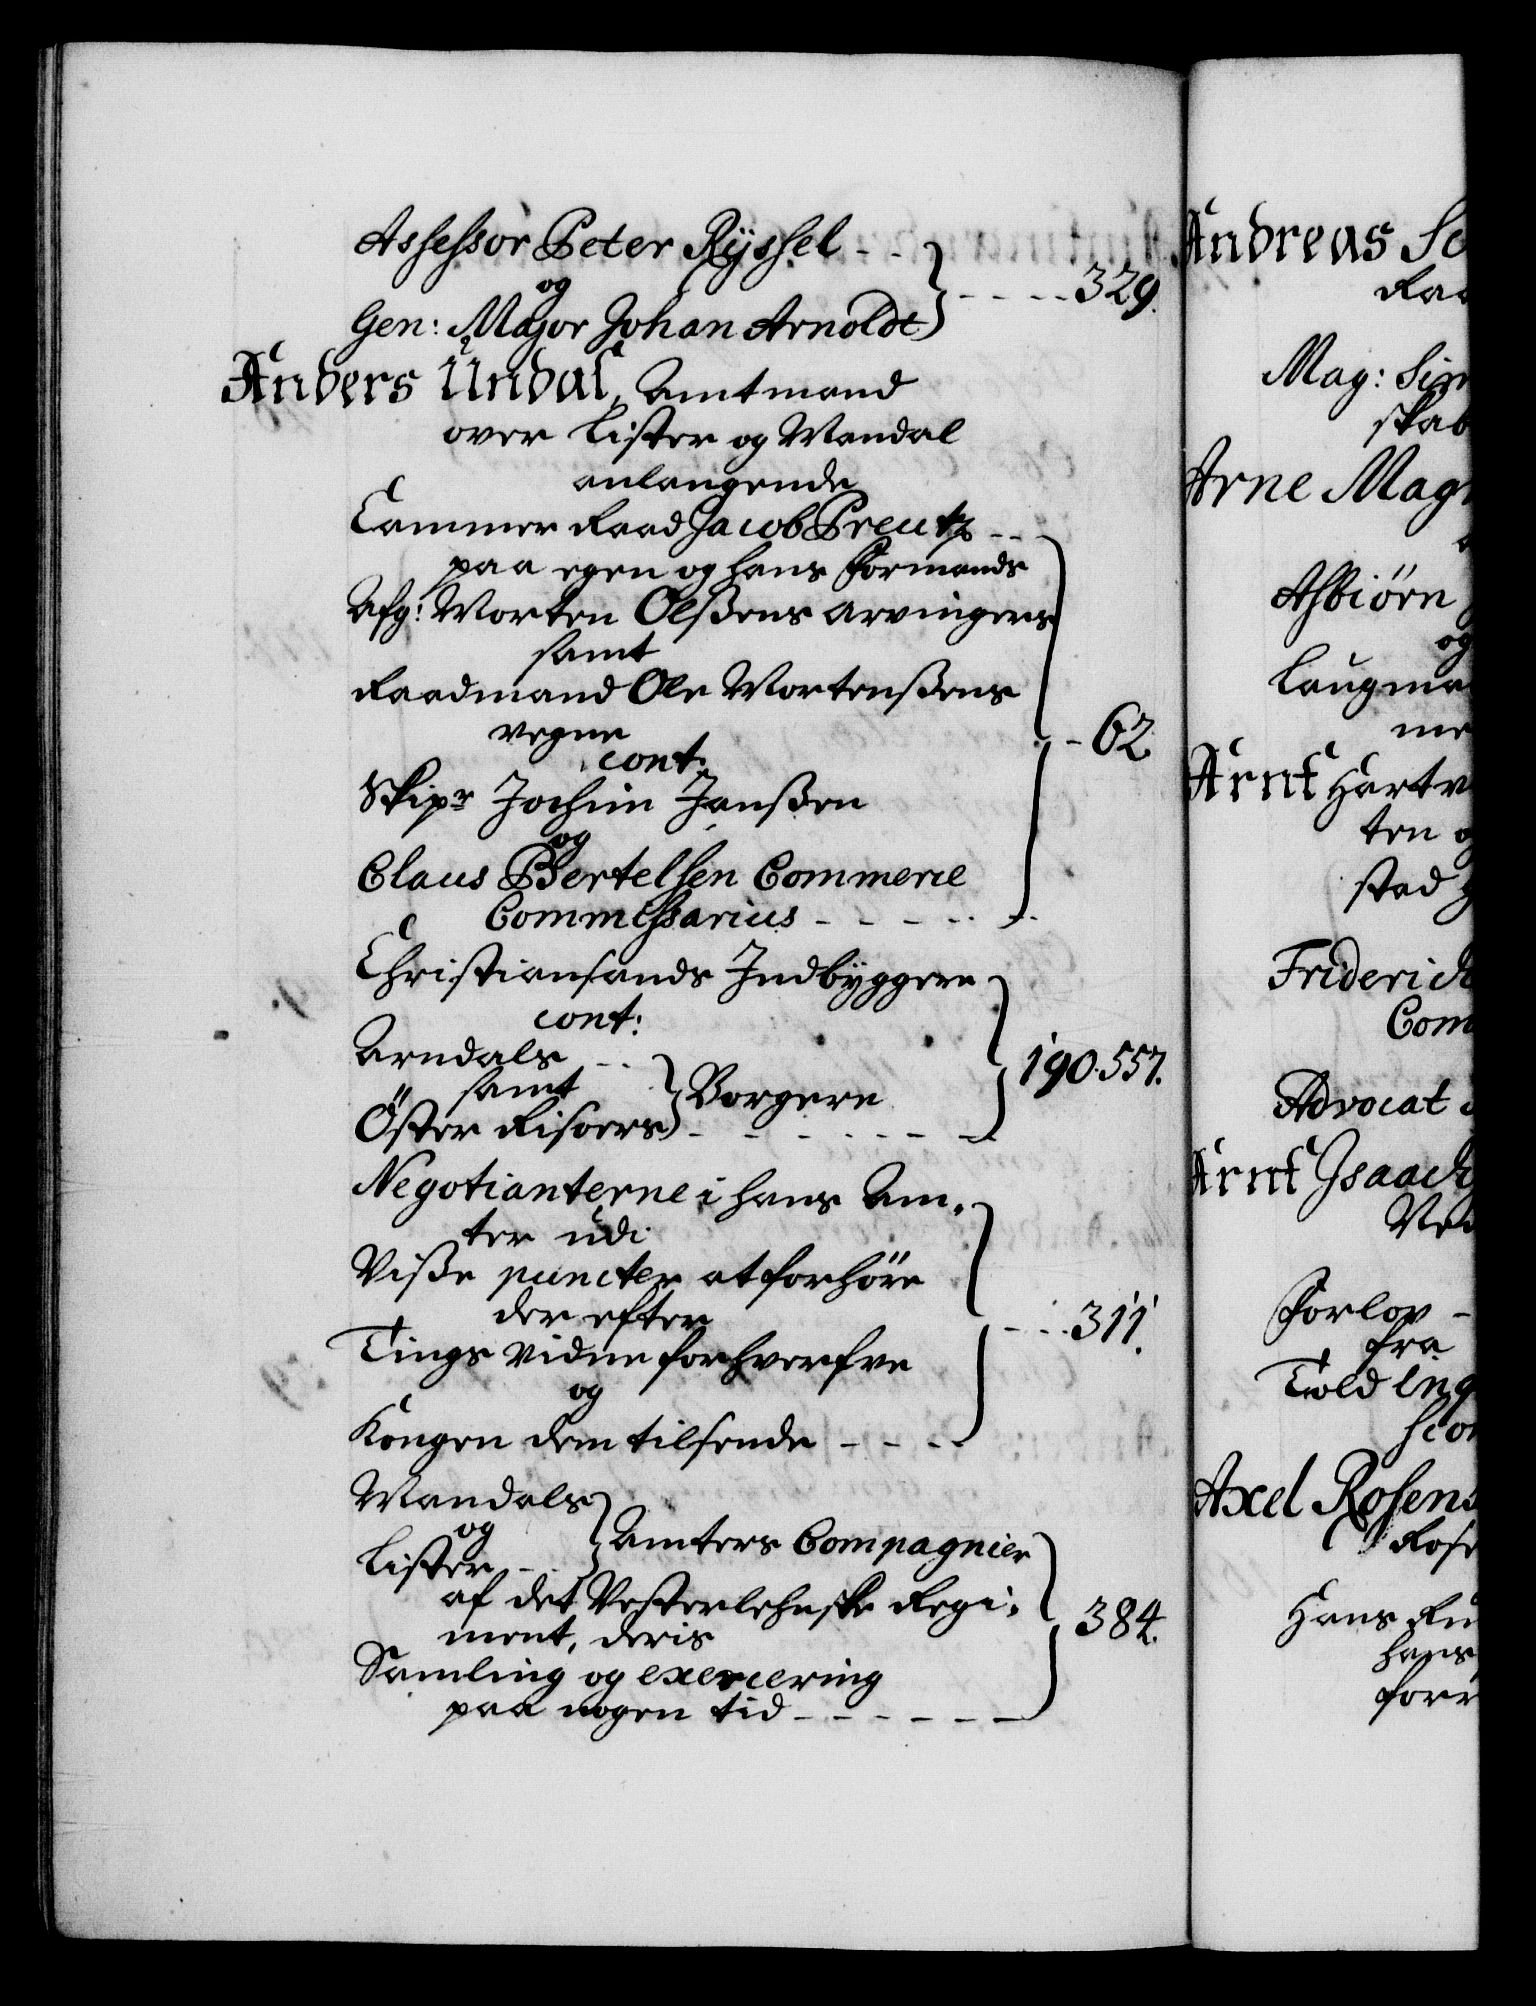 Assessor Peter Rÿssel - -
og
Gen: Major Johan Arnoldt } - - - - 329.
Anders Undal, Amtmand
over Lister og Mandal
anlangende
Cammer Raad Jacob Preutz - - -
paa egen og hans Formands
Afg: Morten Olßens Arvingers
samt
Raadmand Ole Mortenßens
vegne
cont: - 62.
Skipr Jochim Janßen
og
Claus Bertelsen Commerce
Commissarius - - - - - -
Christiansands Indbÿggere
cont:
Arndals - - 190. 557.
samt } Borgere
Öster Risöers - - - - - - -
Negotianterne i hans Am-
ter udi
Viße puncter at forhöre
der efter - - - 311.
Tings vidne forhverfve
og
Kongen dem tilsende - - - -
Mandals
og } Amters Compagnier
Lister - -
af det Vesterlehnske Regi-
ment, deris 384.
Samling og exercering
paa nogen tid - - - - - -
Andreas
Raa
Mag: Sim
skab
Arne Mag
Asbiörn
og
Laugma
me
Arnt Hartv
ten o
stad
Friderich
Com
Advocat
Arnt Isaach
Ved
Forlov -
fra
Told Ing
Axel Rosens
Rose
Hans Ru
hans
forr